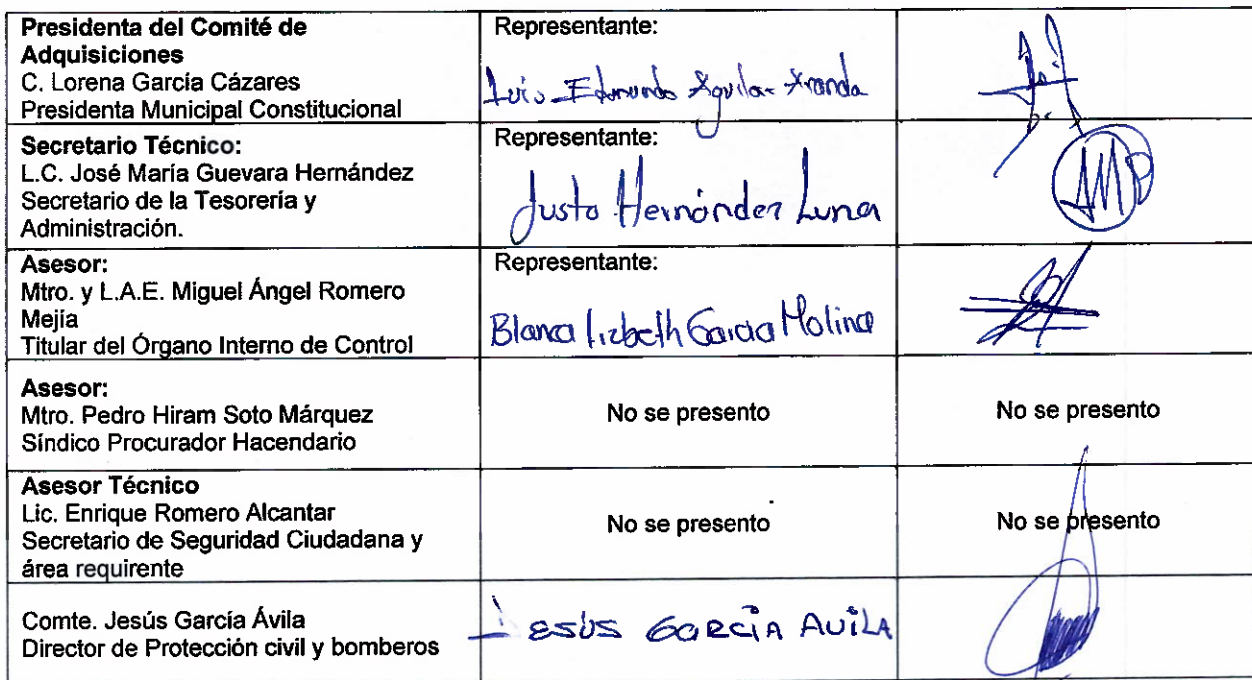 Presidenta del Comité de
Adquisiciones
C. Lorena García Cázares
Presidenta Municipal Constitucional
Representante:
Luis Edmundo Aguilar Aranda
Secretario Técnico:
L.C. José María Guevara Hernández
Secretario de la Tesorería y
Administración.
Representante:
Justo Hernández Luna
Asesor:
Mtro. y L.A.E. Miguel Ángel Romero
Mejía
Titular del Órgano Interno de Control
Representante:
Blanca lizbeth Garcia Molina
Asesor:
Mtro. Pedro Hiram Soto Márquez
Síndico Procurador Hacendario
No se presento
No se presento
Asesor Técnico
Lic. Enrique Romero Alcantar
Secretario de Seguridad Ciudadana y
área requirente
No se presento
No se presento
Comte. Jesús García Ávila
Director de Protección civil y bomberos
JESÚS GARCÍA AVILA